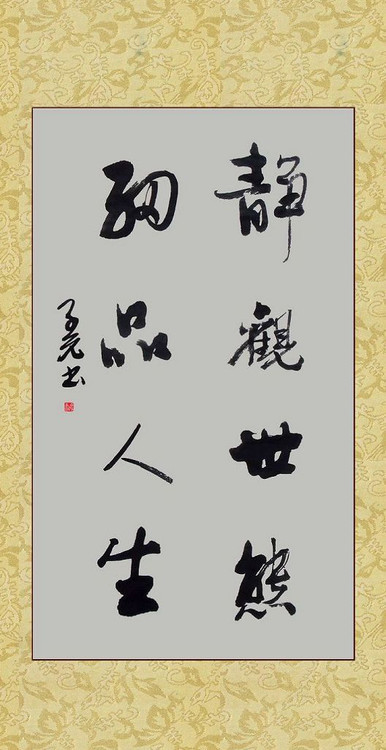 靜觀世態
細品人生
子元书